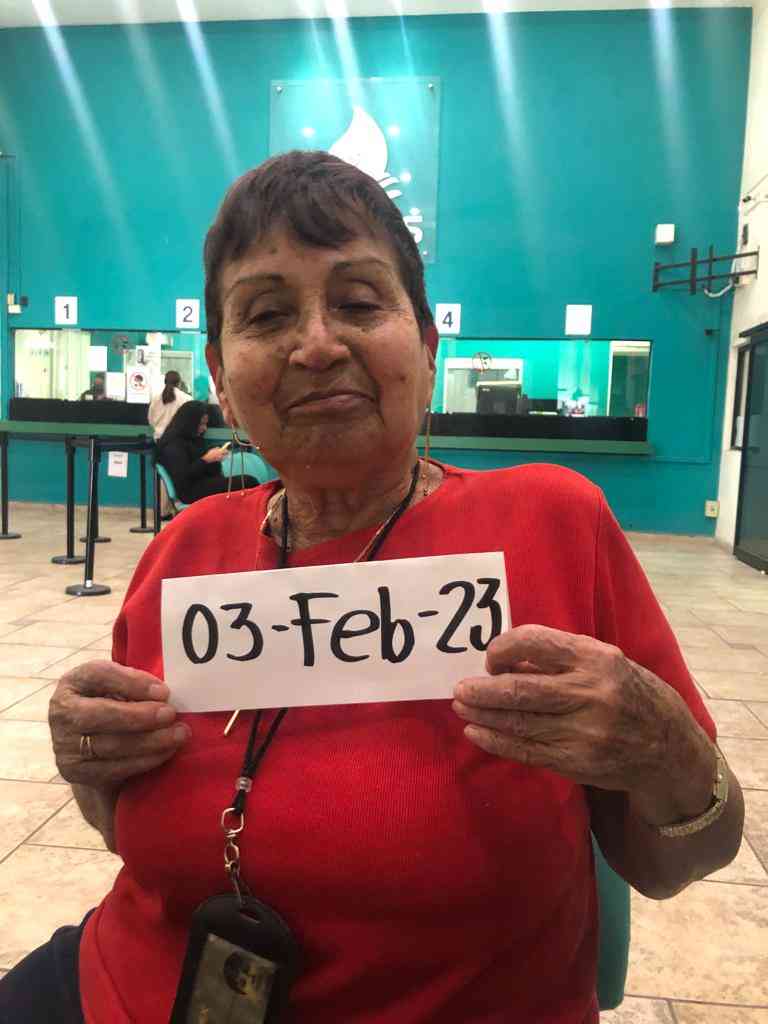 1
2
4
03-Feb-23